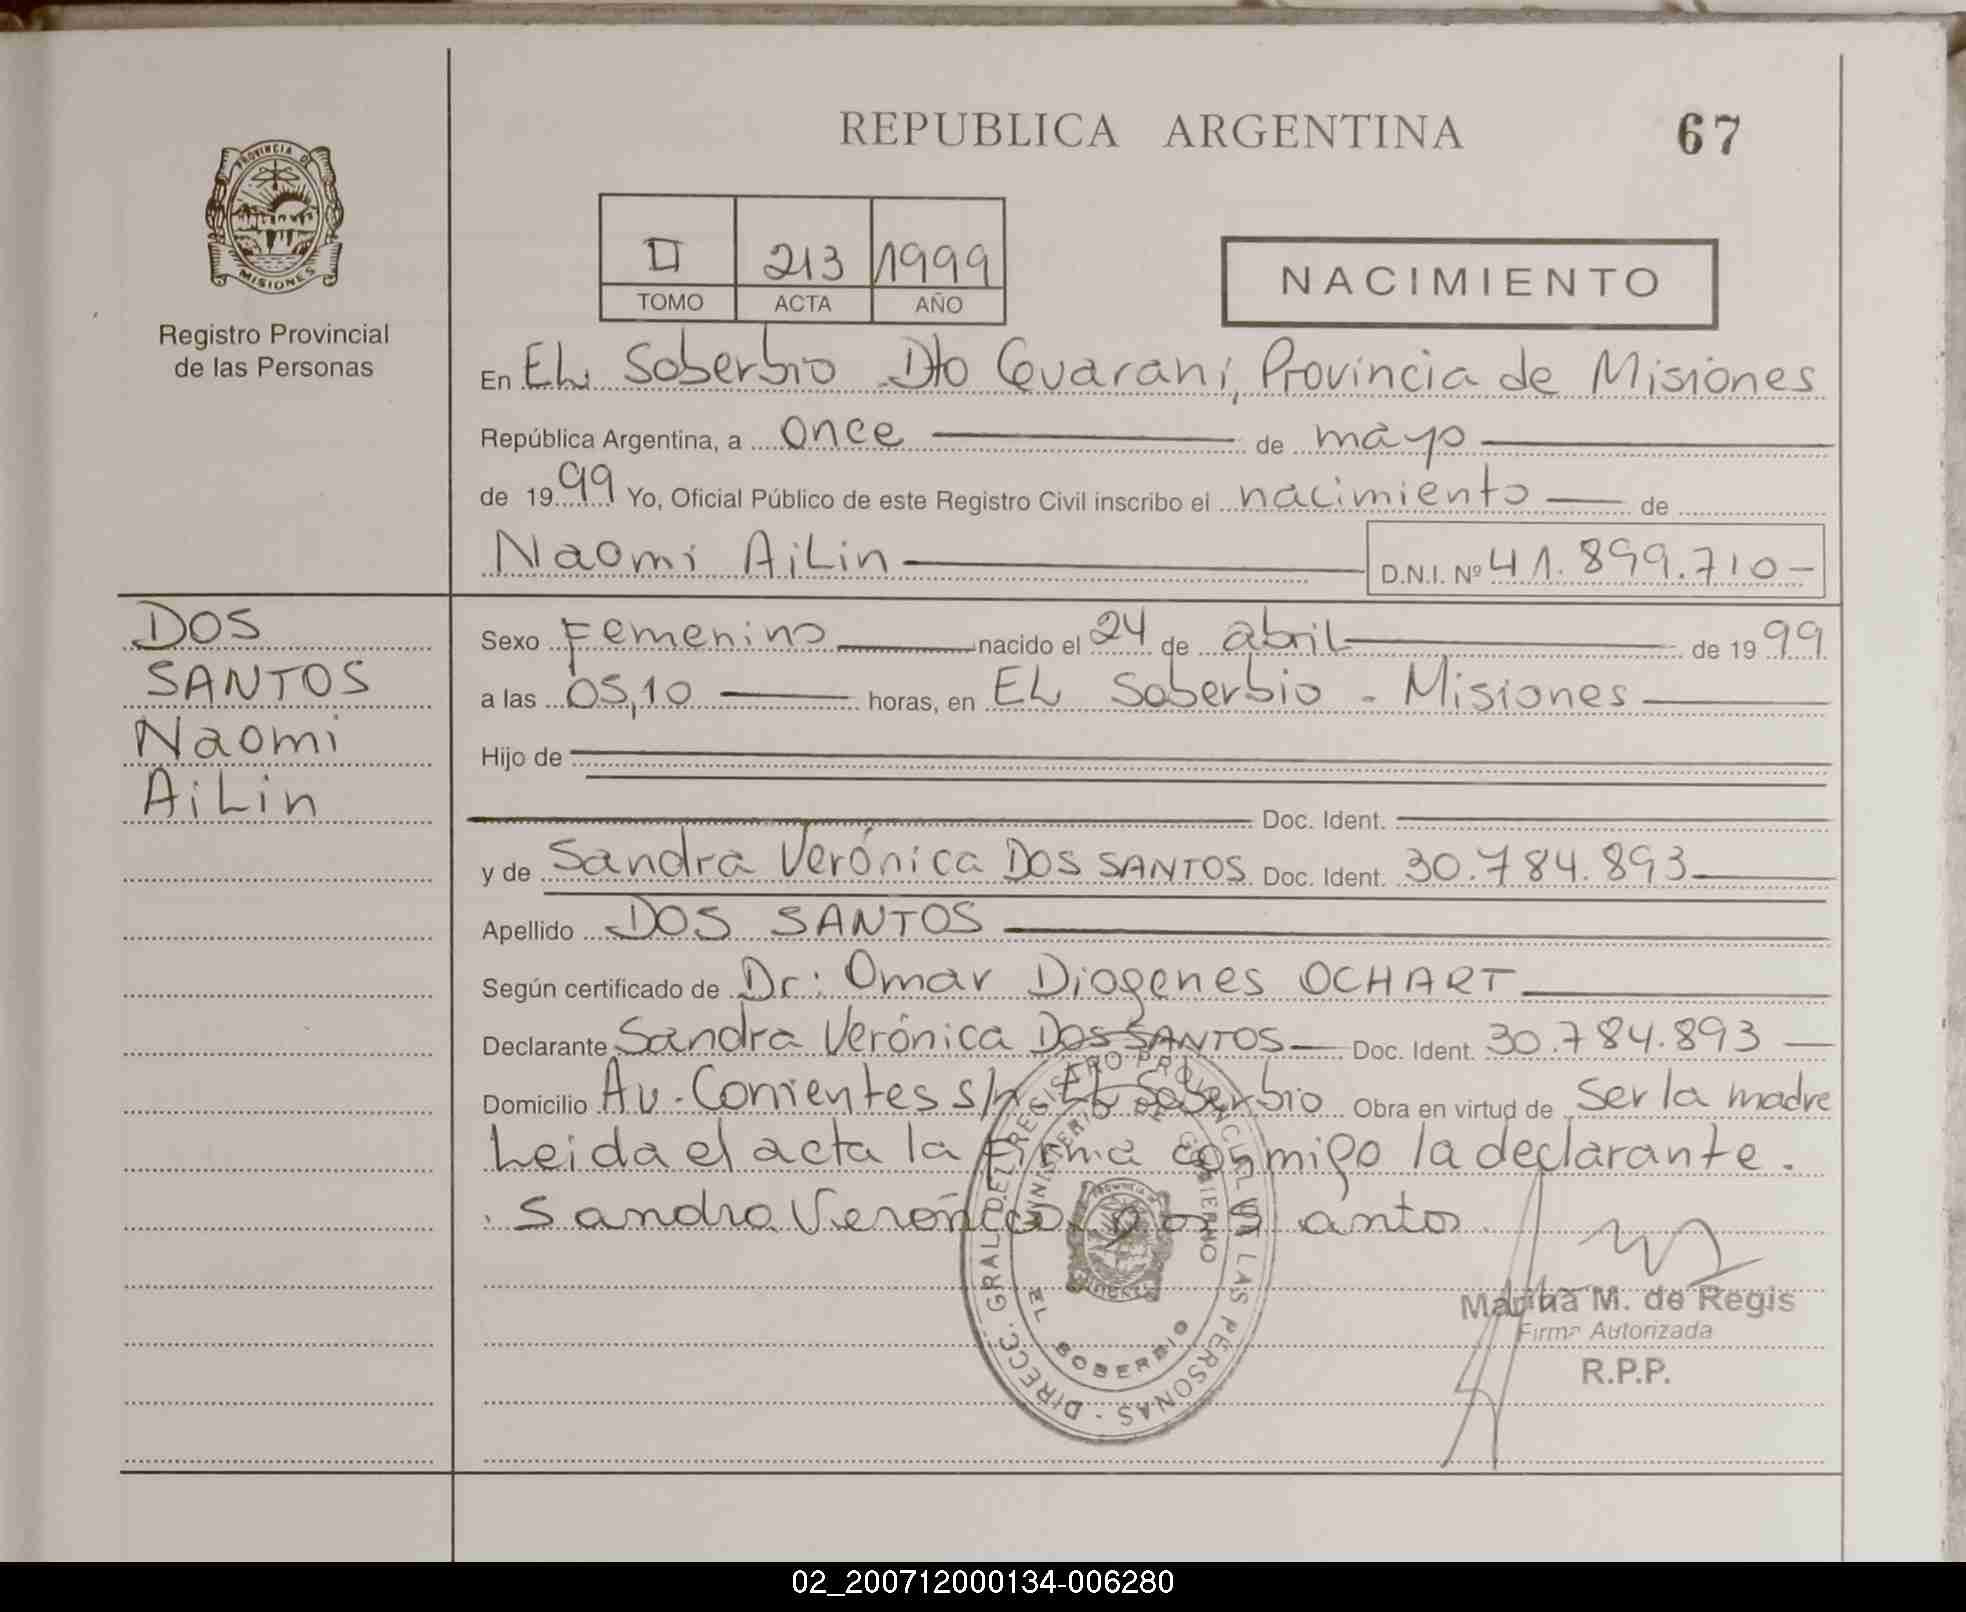 REPUBLICA ARGENTINA
67
PROVINCIA DE
MISIONES
Registro Provincial
de las Personas
II 213 1999
TOMO ACTA AÑO
NACIMIENTO
En EL Soberbio Dto Guarani, Provincia de Misiones
República Argentina, a once de mayo
de 1999 Yo, Oficial Público de este Registro Civil inscribo el nacimiento de
Naomi AiLin D.N.I. Nº 41.899.710-
DOS
SANTOS
Naomi
AiLin
Sexo Femenino nacido el 24 de abril de 1999
a las 05,10 horas, en EL Soberbio - Misiones
Hijo de
Doc. Ident.
y de Sandra Verónica DOS SANTOS Doc. Ident. 30.784.893
Apellido DOS SANTOS
Según certificado de Dr: Omar Diogenes OCHART
Declarante Sandra Verónica DOS SANTOS Doc. Ident. 30.784.893
Domicilio Av. Corrientes s/n EL Soberbio Obra en virtud de ser la madre
Leida el acta la firma conmigo la declarante.
Sandra Verónica Dos Santos
DIRECC. GRAL. DEL REGISTRO PROVINCIAL DE LAS PERSONAS
MINISTERIO DE GOBIERNO
EL SOBERBIO
M. de Regis
Firma Autorizada
R.P.P.
02_200712000134-006280